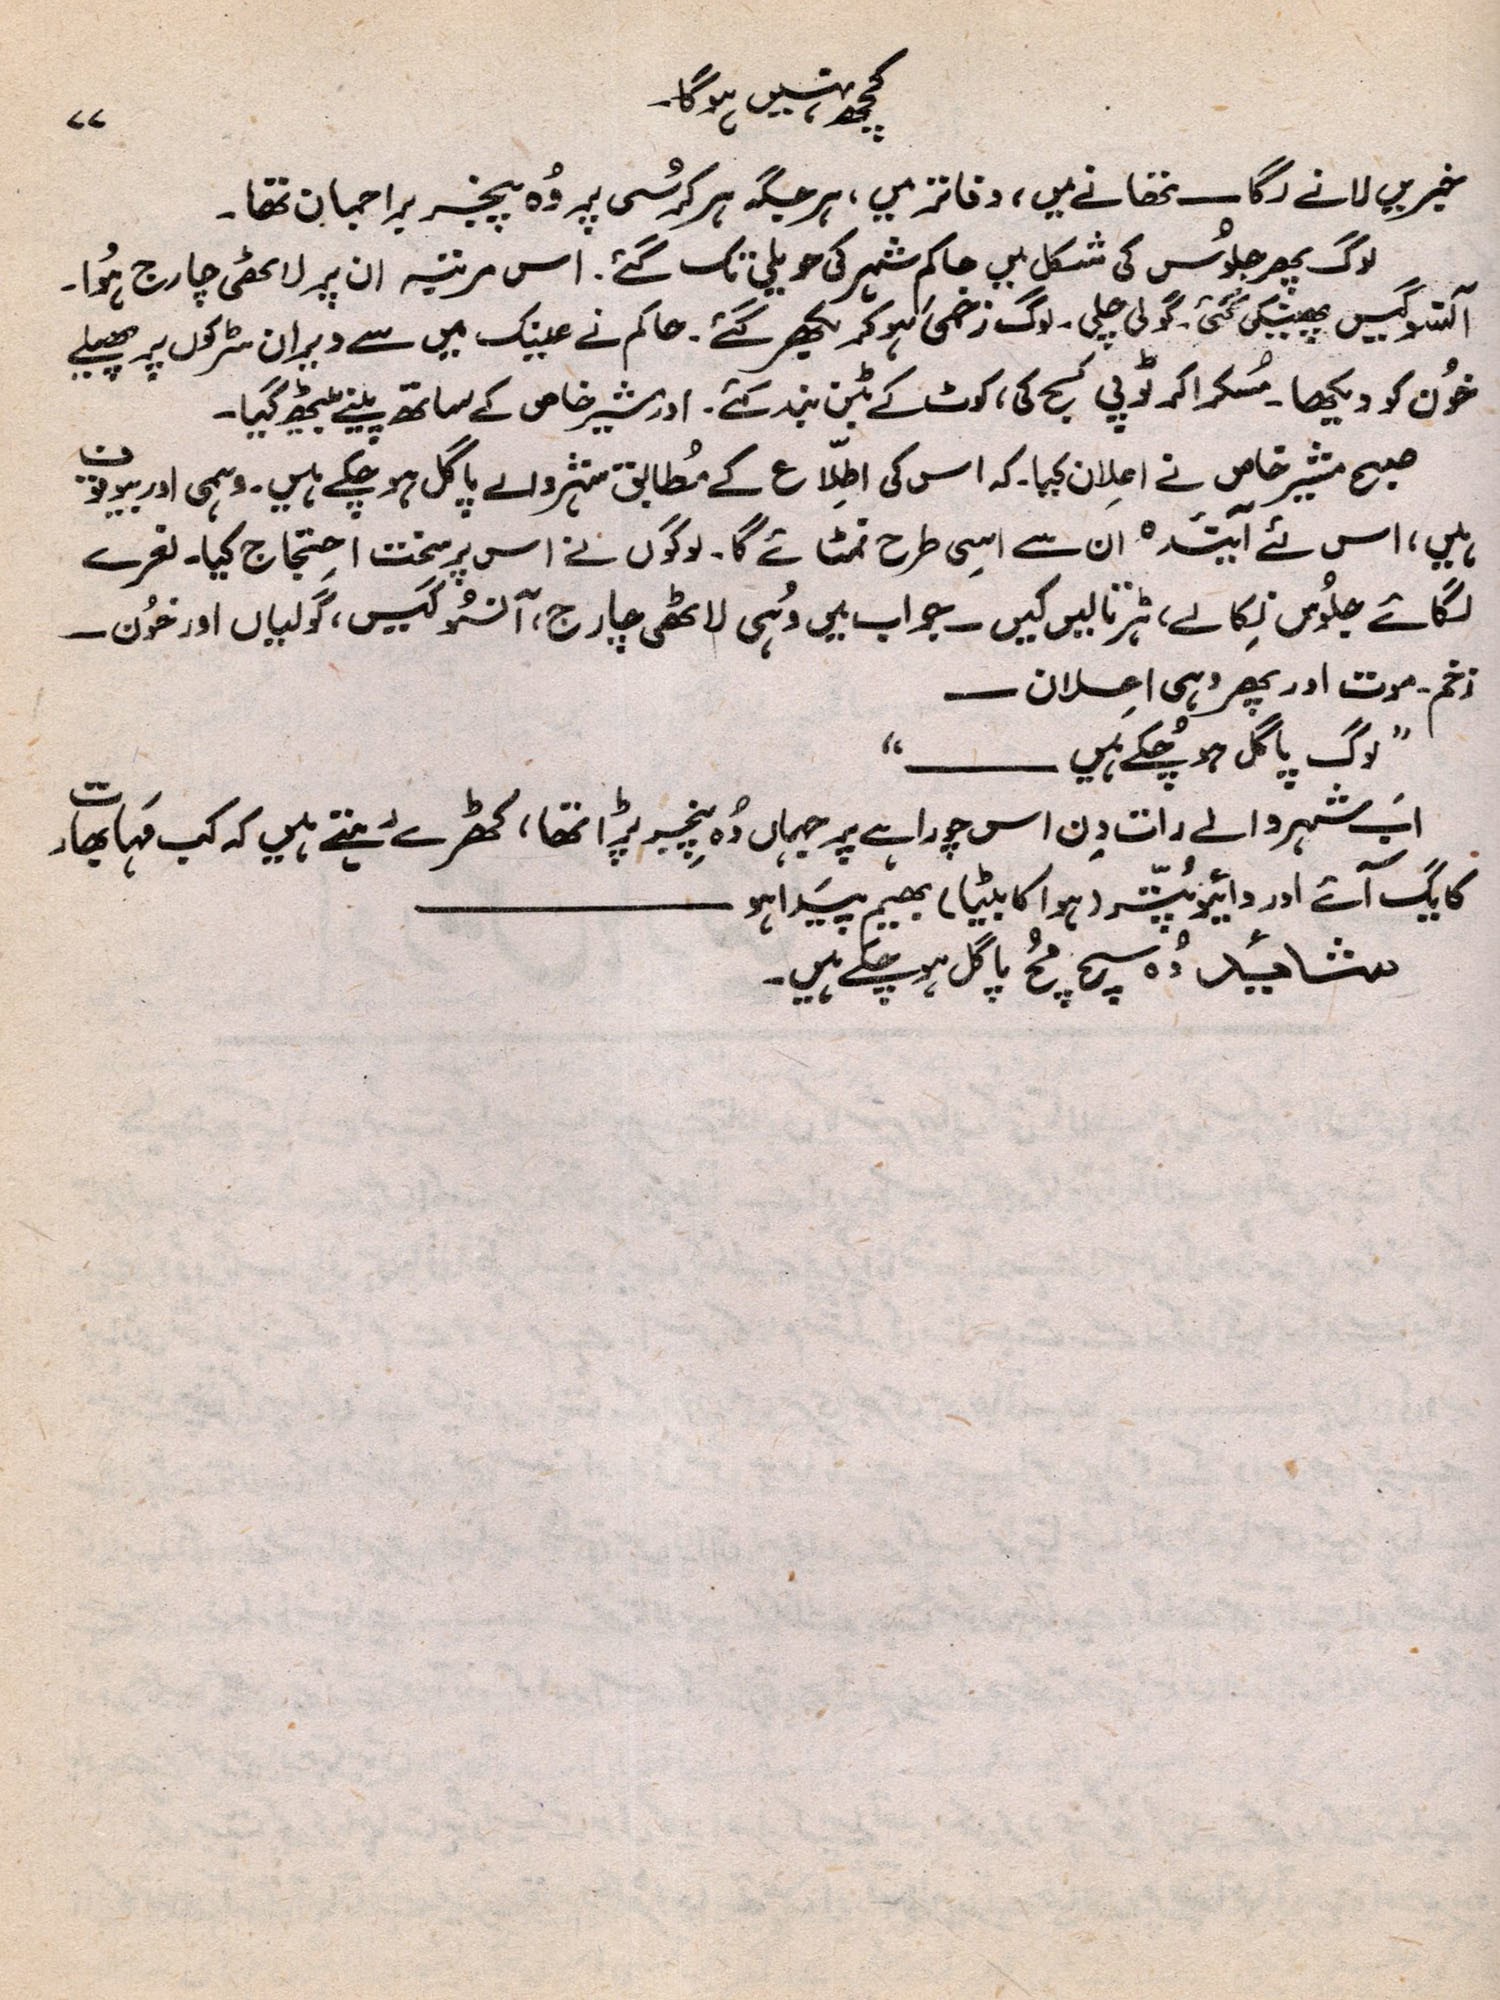 کچھ نہیں ہوگا۔
۷۷
خبریں لانے لگا۔ تھانے میں، دفاتر میں، ہر جگہ ہر کرُسی پر وُہ پنجر براجمان تھا۔
لوگ پھر جلوُس کی شکل میں حاکم شہر کی حویلی تک گئے۔ اس مرتبہ ان پر لاٹھی چارج ہُوا۔
آنسو گیس پھینکی گئی۔ گولی چلی۔ لوگ زخمی ہو کر بکھر گئے۔ حاکم نے عینک میں سے ویران سڑکوں پر پھیلے
خوُن کو دیکھا۔ مُسکرا کر ٹوپی کج کی، کوٹ کے بٹن بند کئے۔ اور مشیر خاص کے ساتھ پینے بیٹھ گیا۔
صبح مشیر خاص نے اعلان کیا۔ کہ اس کی اطلّاع کے مُطابق شہر والے پاگل ہو چکے ہیں۔ وہمی اور بیوقوف
ہیں، اس لئے آیندہ ان سے اسِی طرح نمٹا جائے گا۔ لوگوں نے اس پر سخت احِتجاج کیا۔ نعرے
لگائے جلوُس نِکالے، ہڑتالیں کیں۔ جواب میں وُہی لاٹھی چارج، آنسوُ گیس، گولیاں اور خوُن۔
زخم۔ موت اور پھر وہی اعِلان ــــ
”لوگ پاگل ہو چُکے ہیں ــــــــ“
اَب شہر والے رات دِن اس چوراہے پر جہاں وُہ پنِجر پڑا تھا، کھڑے رہتے ہیں کہ کب مَہا بھارت
کا یگ آئے اور وائیو پُتّر (ہوا کا بیٹا) بھیم پیَدا ہو ــــــــــــ
شائید وُہ سچ مچُ پاگل ہو چکے ہیں۔